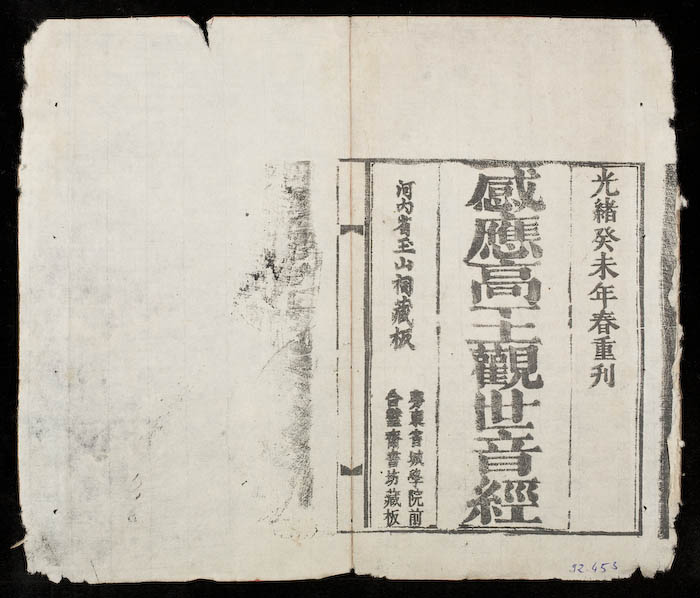 光緒癸未年春重刊
感應高王觀世音經
河內省玉山祠藏板
粵東省城學院前
合璧齋書坊藏板
32.453